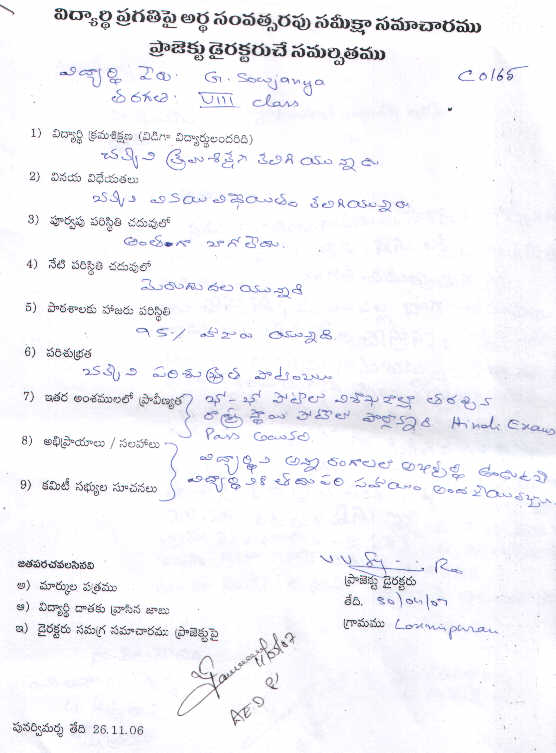 విద్యార్థి ప్రగతిపై అర్థ సంవత్సరపు సమీక్షా సమాచారము
ప్రాజెక్టు డైరక్టరుచే సమర్పితము
విద్యార్థి పేరు: G. Sowjanya
C0165
తరగతి: VIII class
1) విద్యార్థి క్రమశిక్షణ (విడిగా విద్యార్థులందరిది)
చక్కని క్రమశిక్షణ కలిగి యున్నది
2) వినయ విధేయతలు
చక్కని వినయ విధేయతలు కలిగియున్నది
3) పూర్వపు పరిస్థితి చదువులో
అంతగా బాగాలేదు.
4) నేటి పరిస్థితి చదువులో
మెరుగుదల యున్నది
5) పాఠశాలకు హాజరు పరిస్థితి
95% హాజరు యున్నది
6) పరిశుభ్రత
చక్కని పరిశుభ్రత పాటించును
7) ఇతర అంశములలో ప్రావీణ్యత
ఖో-ఖో పోటీలో విశాఖజిల్లా తరఫున
రాష్ట్ర స్థాయి పోటీలో పాల్గొన్నది Hindi Exam
Pass అయినది.
8) అభిప్రాయాలు / సలహాలు
విద్యార్థిని అన్ని రంగాలలో అభివృద్ధి
9) కమిటీ సభ్యుల సూచనలు
విద్యార్థినికి తదుపరి సహాయం
జతపరచవలసినవి
అ) మార్కుల పత్రము
ఆ) విద్యార్థి దాతకు వ్రాసిన జాబు
ఇ) డైరక్టరు సమగ్ర సమాచారము ప్రాజెక్టుపై
ప్రాజెక్టు డైరక్టరు
తేది. 30/04/07
గ్రామము
1/05/07
AED
పునర్విమర్శ తేది 26.11.06